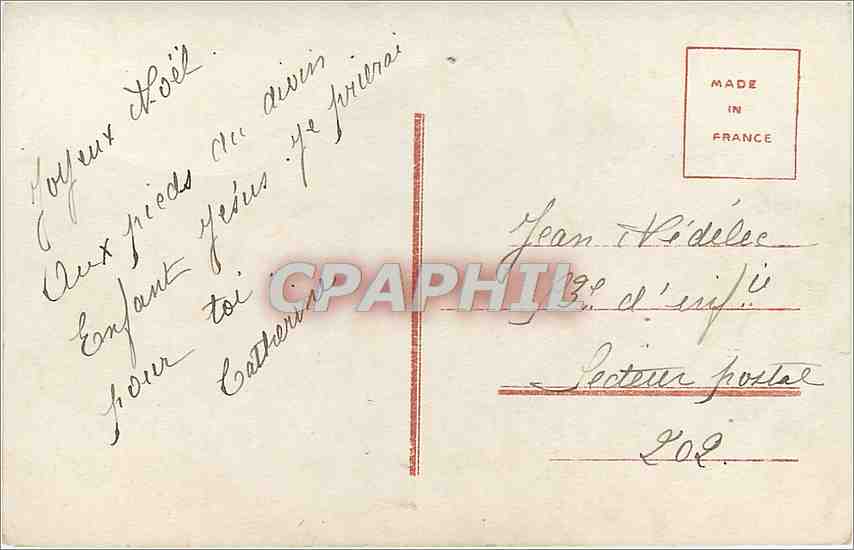 Joyeux Noël.
Aux pieds du divin
Enfant Jésus je prierai
pour toi.
Catherine
MADE
IN
FRANCE
Jean Nédélec
d'enfie
Secteur postal
202.
CPAPHIL